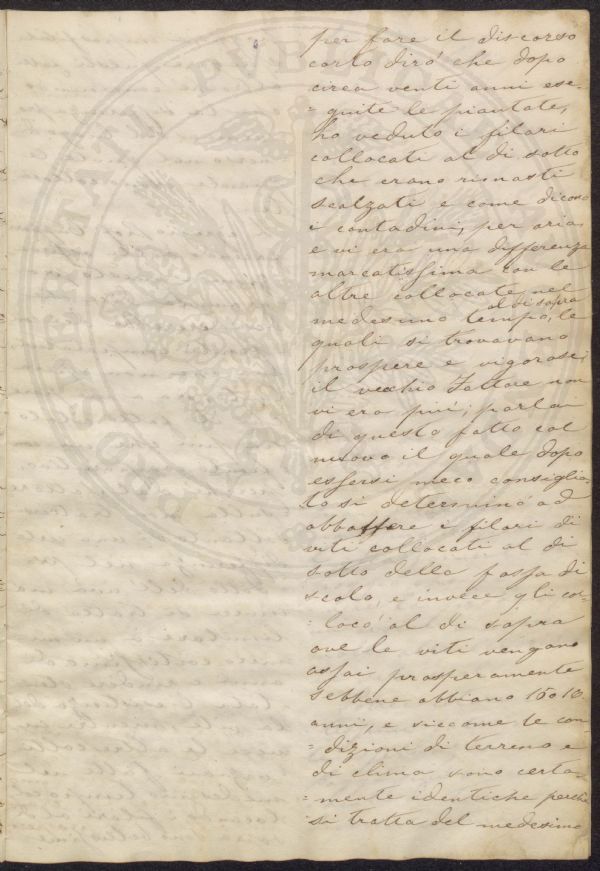 per fare il discorso
corto dirò che dopo
circa venti anni ese-
=guite le piantate,
ho veduto i filari
collocati al di sotto
che erano rimasti
scalzati e come dicono
i contadini, per aria,
e vi era una differenza
marcatissima con le
altre collocate nel
al di sopra
medesimo tempo, le
quali si trovavano
prospere e vigorose;
il vecchio Fattore non
vi era più; parlai
di questo fatto col
nuovo il quale dopo
essersi meco consiglia-
to si determinò ad
i filari di
viti collocati al di
sotto della fossa di
scolo, e invece gli col-
=locò al di sopra
ove le viti vengano
assai prosperamente
sebbene abbiano
anni, e siccome le con
=dizioni di terreno e
di clima sono certa-
=mente identiche perchè
si tratta del medesimo
PROSPERITATI PVBLICAE